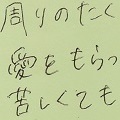 周りのたく
愛をもらっ
苦しくても